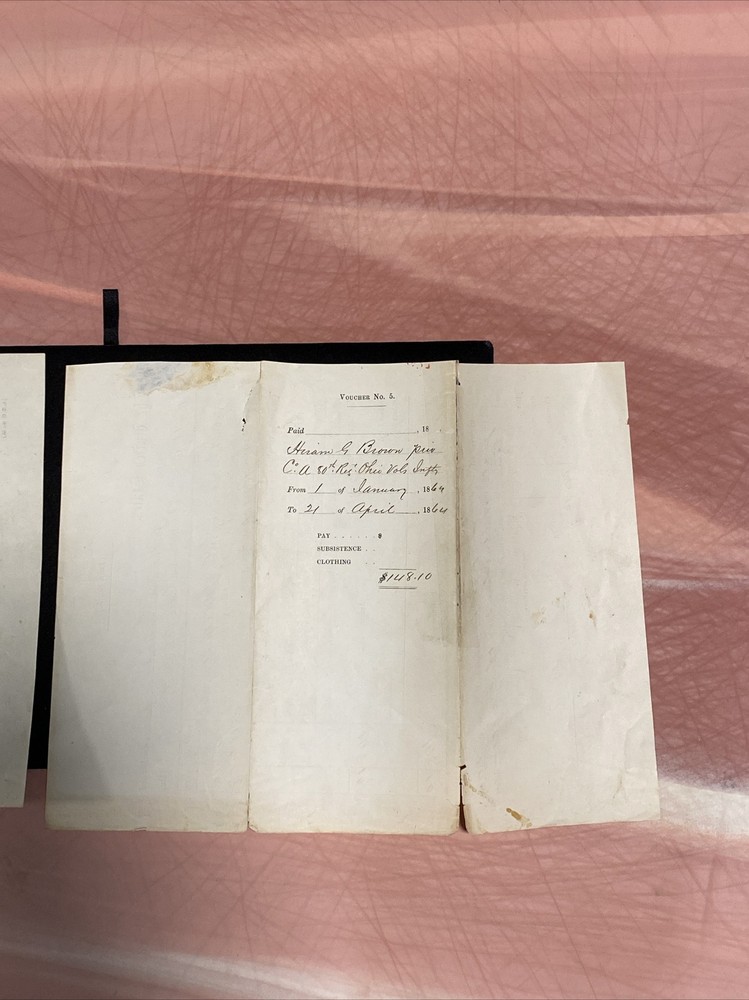 VOUCHER No. 5.
Paid , 18
Hiram G Brown priv
Co. A 80th Reg. Ohio Vols Infty
From 1 of January , 1864
To 21 of April , 1864
PAY . . . . . . $
SUBSISTENCE . .
CLOTHING . .
$148.10